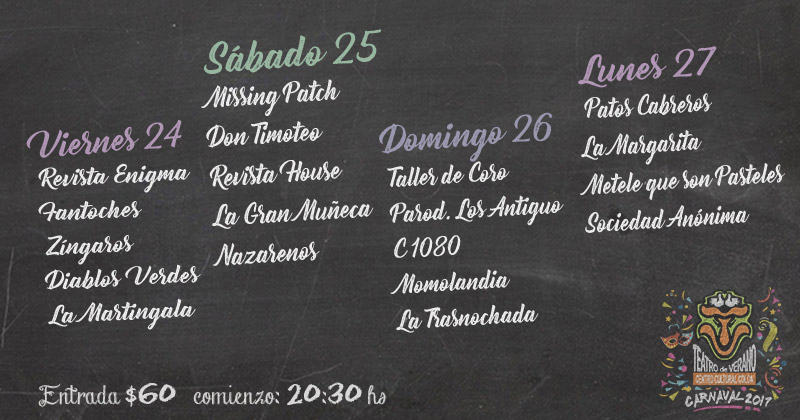 Viernes 24
Revista Enigma
Fantoches
Zíngaros
Diablos Verdes
La Martingala
Sábado 25
Missing Patch
Don Timoteo
Revista House
La Gran Muñeca
Nazarenos
Domingo 26
Taller de Coro
Parod. Los Antiguo
C1080
Momolandia
La Trasnochada
Lunes 27
Patos Cabreros
La Margarita
Metele que son Pasteles
Sociedad Anónima
Entrada $60 comienzo: 20:30 hs
TEATRO de VERANO
CENTRO CULTURAL COLÓN
CARNAVAL 2017